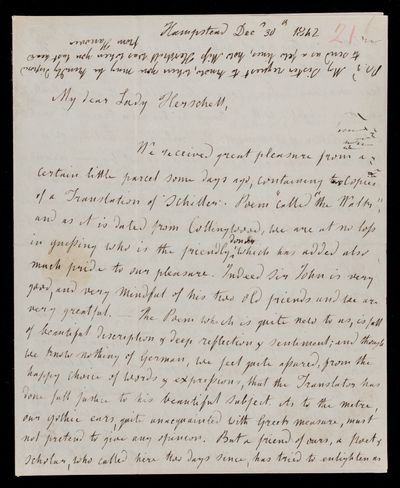 Hampstead Decr 30th 1842
21
My dear Lady Herschell,
We received great pleasure from a
certain little parcel some days ago, containing two Copies
of a Translation of Schiller's Poem called "the Walk"
and as it is dated from Collingwood, we are at no loss
in guessing who is the friendly donor which has added also
much pride to our pleasure. Indeed Sir John is very
good, and very mindful of his two old friends and we are
very greatful. — The Poem which is quite new to us, is full
of beautiful description & deep reflection & sentiment; and though
we know nothing of German, we feel quite assured, from the
happy choice of words & expressions, that the Translator has
done full justice to his beautiful subject. As to the metre,
our gothic ears, quite unacquainted with Greek measure, must
not pretend to give any opinion. But a friend of ours, a Poet &
Scholar, who called here two days since, has tried to enlighten us
P.S. My Sister requests to know, when you may be kindly disposed
to send us a few lines, how Miss Herschell was when you last heard
from Hanover